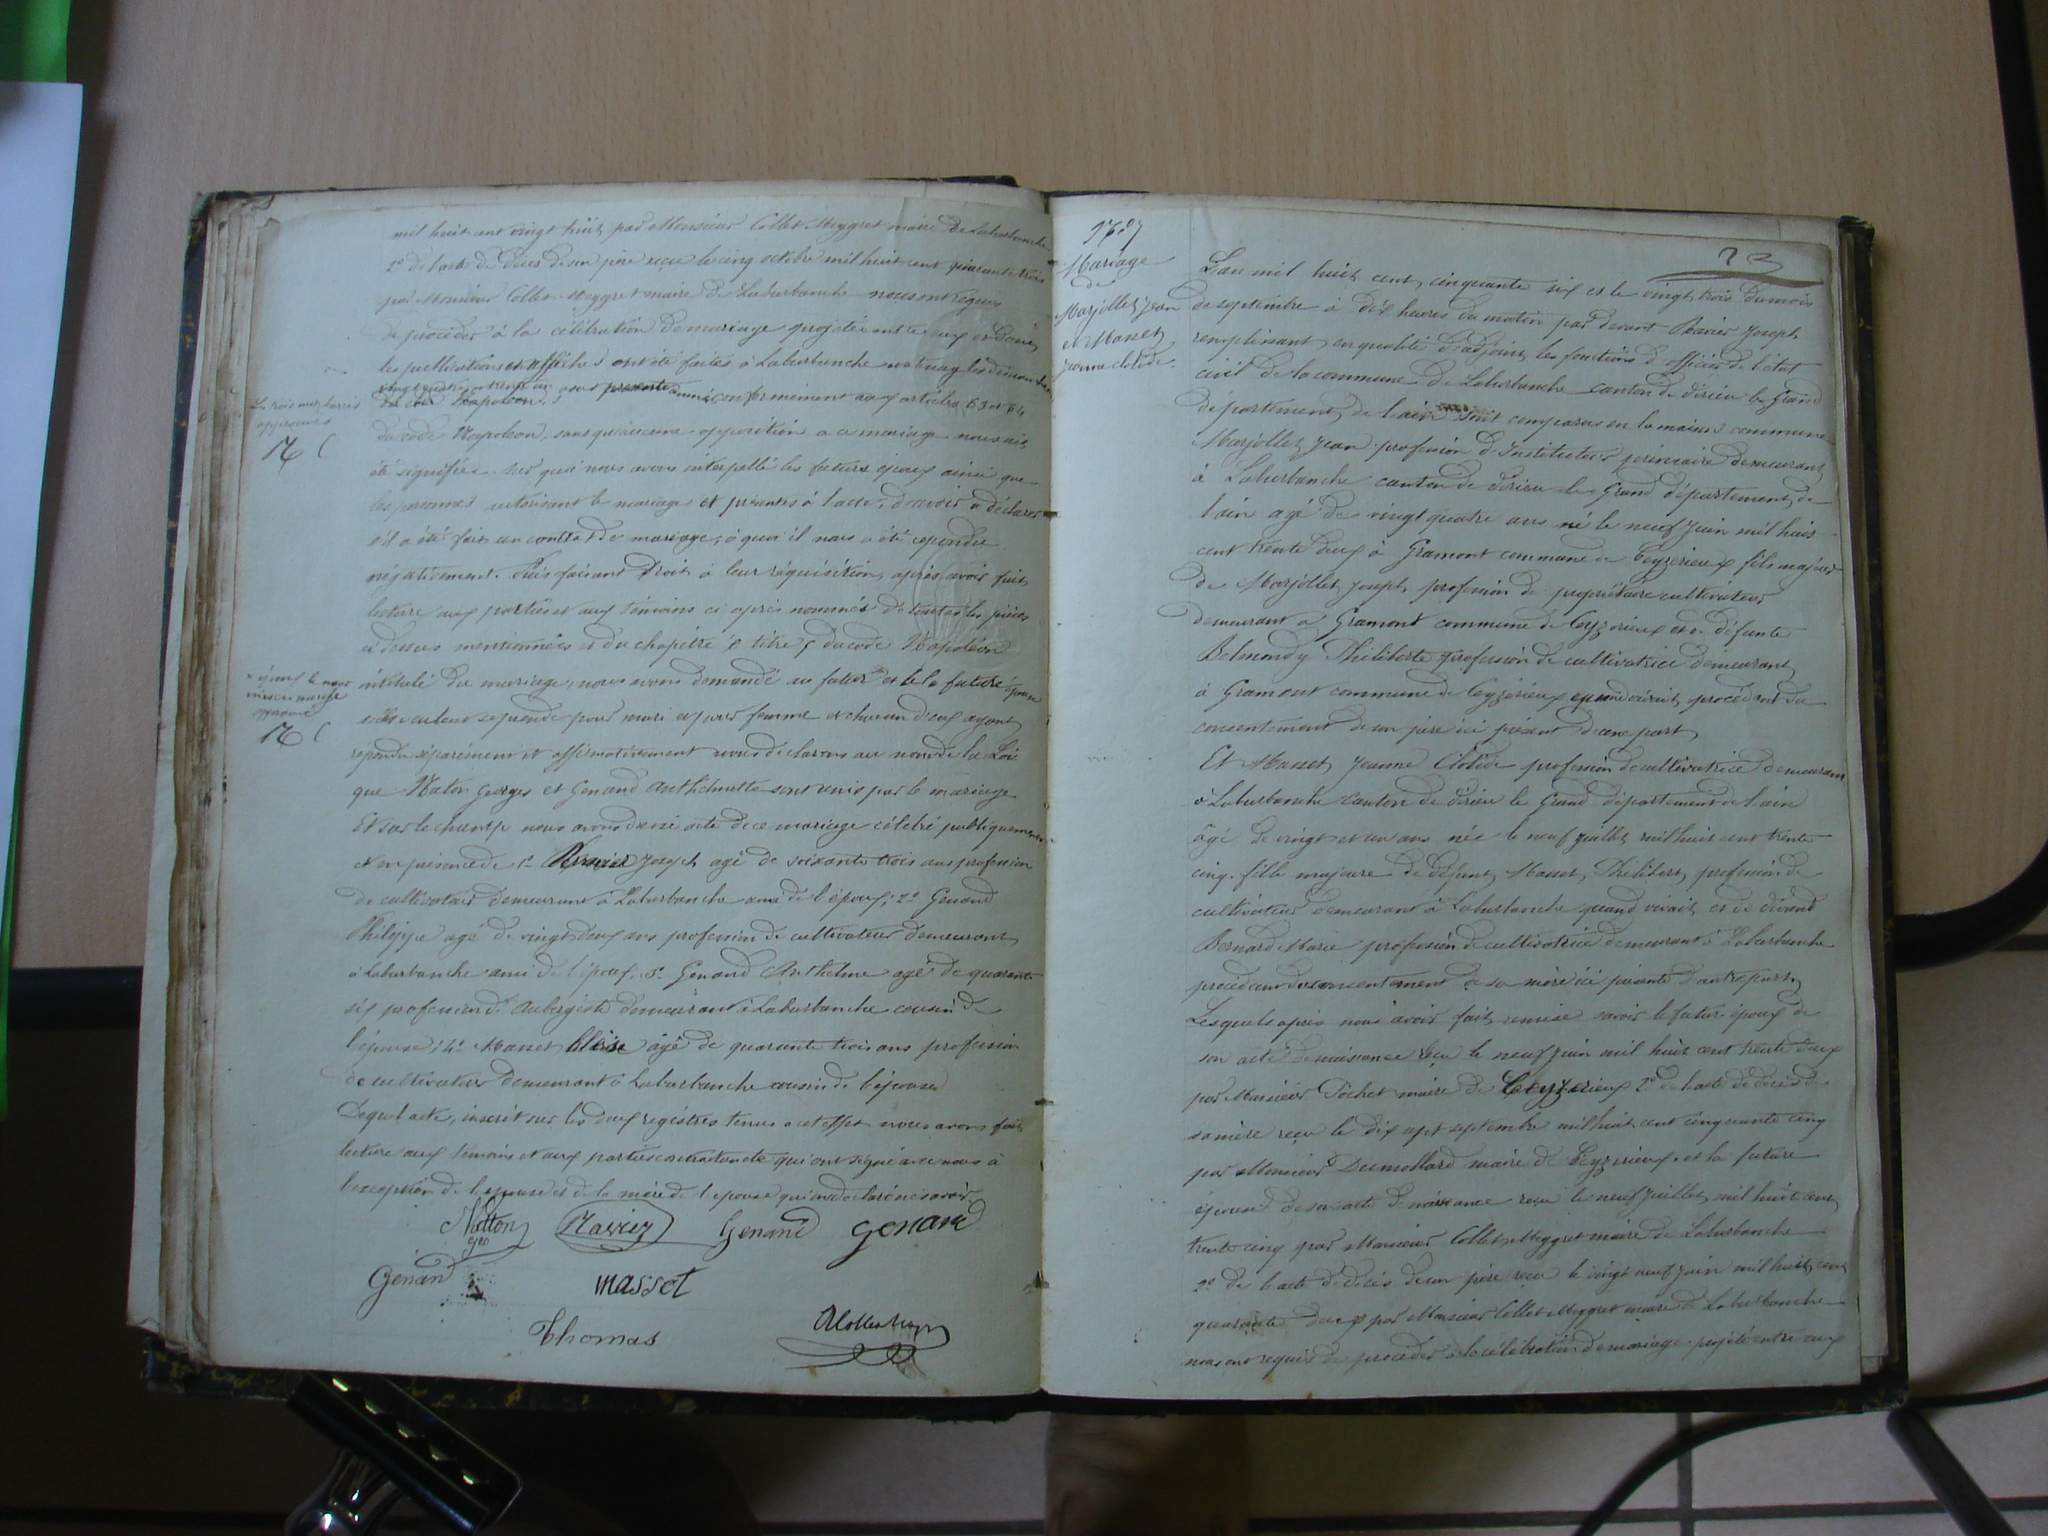 mil huit cent vingt huit par Monsieur Collet Meygret maire de Laburbanche
2º de l'acte de décès de son père reçu le cinq octobre mil huit cent quarante trois
par Monsieur Collet Meygret maire de Laburbanche nous ont requis
de procéder à la célébration du mariage projeté entre eux et dont
les publications et affiches ont été faites à Laburbanche les dimanches
conformément aux articles 63 et 64
du code Napoléon, sans qu'aucune opposition a ce mariage nous ait
été signifiée. Sur quoi nous avons interpellé les futurs époux ainsi que
les personnes autorisant le mariage et présentes à l'acte, d'avoir à déclarer
s'il a été fait un contrat de mariage, à quoi il nous a été répondu
négativement. Puis faisant droit à leur réquisition, après avoir fait
lecture aux parties et aux témoins ci après nommés de toutes les pièces
ci dessus mentionnées et du chapitre 6 titre 5 du code Napoléon
intitulé du mariage, nous avons demandé au futur et à la future épouse
s'ils veulent se prendre pour mari et pour femme et chacun d'eux ayant
répondu séparément et affirmativement nous déclarons au nom de la Loi
que Naton Georges et Genand Anthelmette sont unis par le mariage
Et sur le champ nous avons dressé acte de ce mariage célébré publiquement
et en présence de 1º Ravier Joseph agé de soixante trois ans profession
de cultivateur demeurant à Laburbanche ami de l'époux; 2º Genand
Philippe agé de vingt deux ans profession de cultivateur demeurant
à Laburbanche ami de l'époux. 3º Genand Anthelme agé de quarante
six profession d'aubergiste demeurant à Laburbanche cousin de
l'épouse; 4º Masset Blaise agé de quarante trois ans profession
de cultivateur demeurant à Laburbanche cousin de l'épouse
Duquel acte, inscrit sur les deux registres tenus a cet effet nous avons fait
lecture aux témoins et aux parties contractantes qui ont signé avec nous à
l'exception de l'épouse et de la mère de l'épouse qui ont déclaré ne savoir.
Natton
Ravier
Genand
Genand
Genand
masset
Thomas
23
Mariage
de
Marjollet Jean
et Masset
Jeanne Clotide.
L'an mil huit cent cinquante six et le vingt trois du mois
de septembre à dix heures du matin par devant Ravier Joseph
remplissant en qualité d'adjoint les fonctions d'officier de l'état
civil de la commune de Laburbanche canton de Virieu le Grand
département de l'ain sont comparus en la maison commune
Marjollet Jean profession d'Instituteur primaire demeurant
à Laburbanche canton de Virieu le Grand département de
l'ain agé de vingt quatre ans né le neuf Juin mil huit
cent trente deux à Gramont commune de Ceyzerieux fils majeur
de Marjollet Joseph profession de propriétaire cultivateur
demeurant à Gramont commune de Ceyzerieux et de défunte
Belmondy Philiberte profession de cultivatrice demeurant
à Gramont commune de Ceyzerieux quand vivait, procédant du
consentement de son père ici présent d'une part
Et Masset Jeanne Clotide profession de cultivatrice demeurant
à Laburbanche canton de Virieu le Grand département de l'ain
âgé de vingt et un ans née le neuf juillet mil huit cent trente
cinq fille majeure de défunt Masset Philibert profession de
cultivateur demeurant à Laburbanche quand vivait et de
Bernard Marie profession de cultivatrice demeurant à Laburbanche
procédant du consentement de sa mère ici présente d'autre part,
Lesquels après nous avoir fait remise savoir le futur époux de
son acte de naissance reçu le neuf Juin mil huit cent trente deux
par Monsieur Pochet maire de Ceyzerieux 2º de l'acte de décès de
sa mère reçu le dix sept septembre mil huit cent cinquante cinq
par Monsieur Dumollard maire de Ceyzerieux. et la future
épouse de son acte de naissance reçu le neuf juillet mil huit cent
trente cinq par Monsieur Collet Meygret maire de Laburbanche
2º de l'acte de décès de son père reçu le vingt neuf Juin mil huit cent
quarante deux par Monsieur Collet Meygret maire de Laburbanche
nous ont requis de procéder à la célébration du mariage projeté entre eux